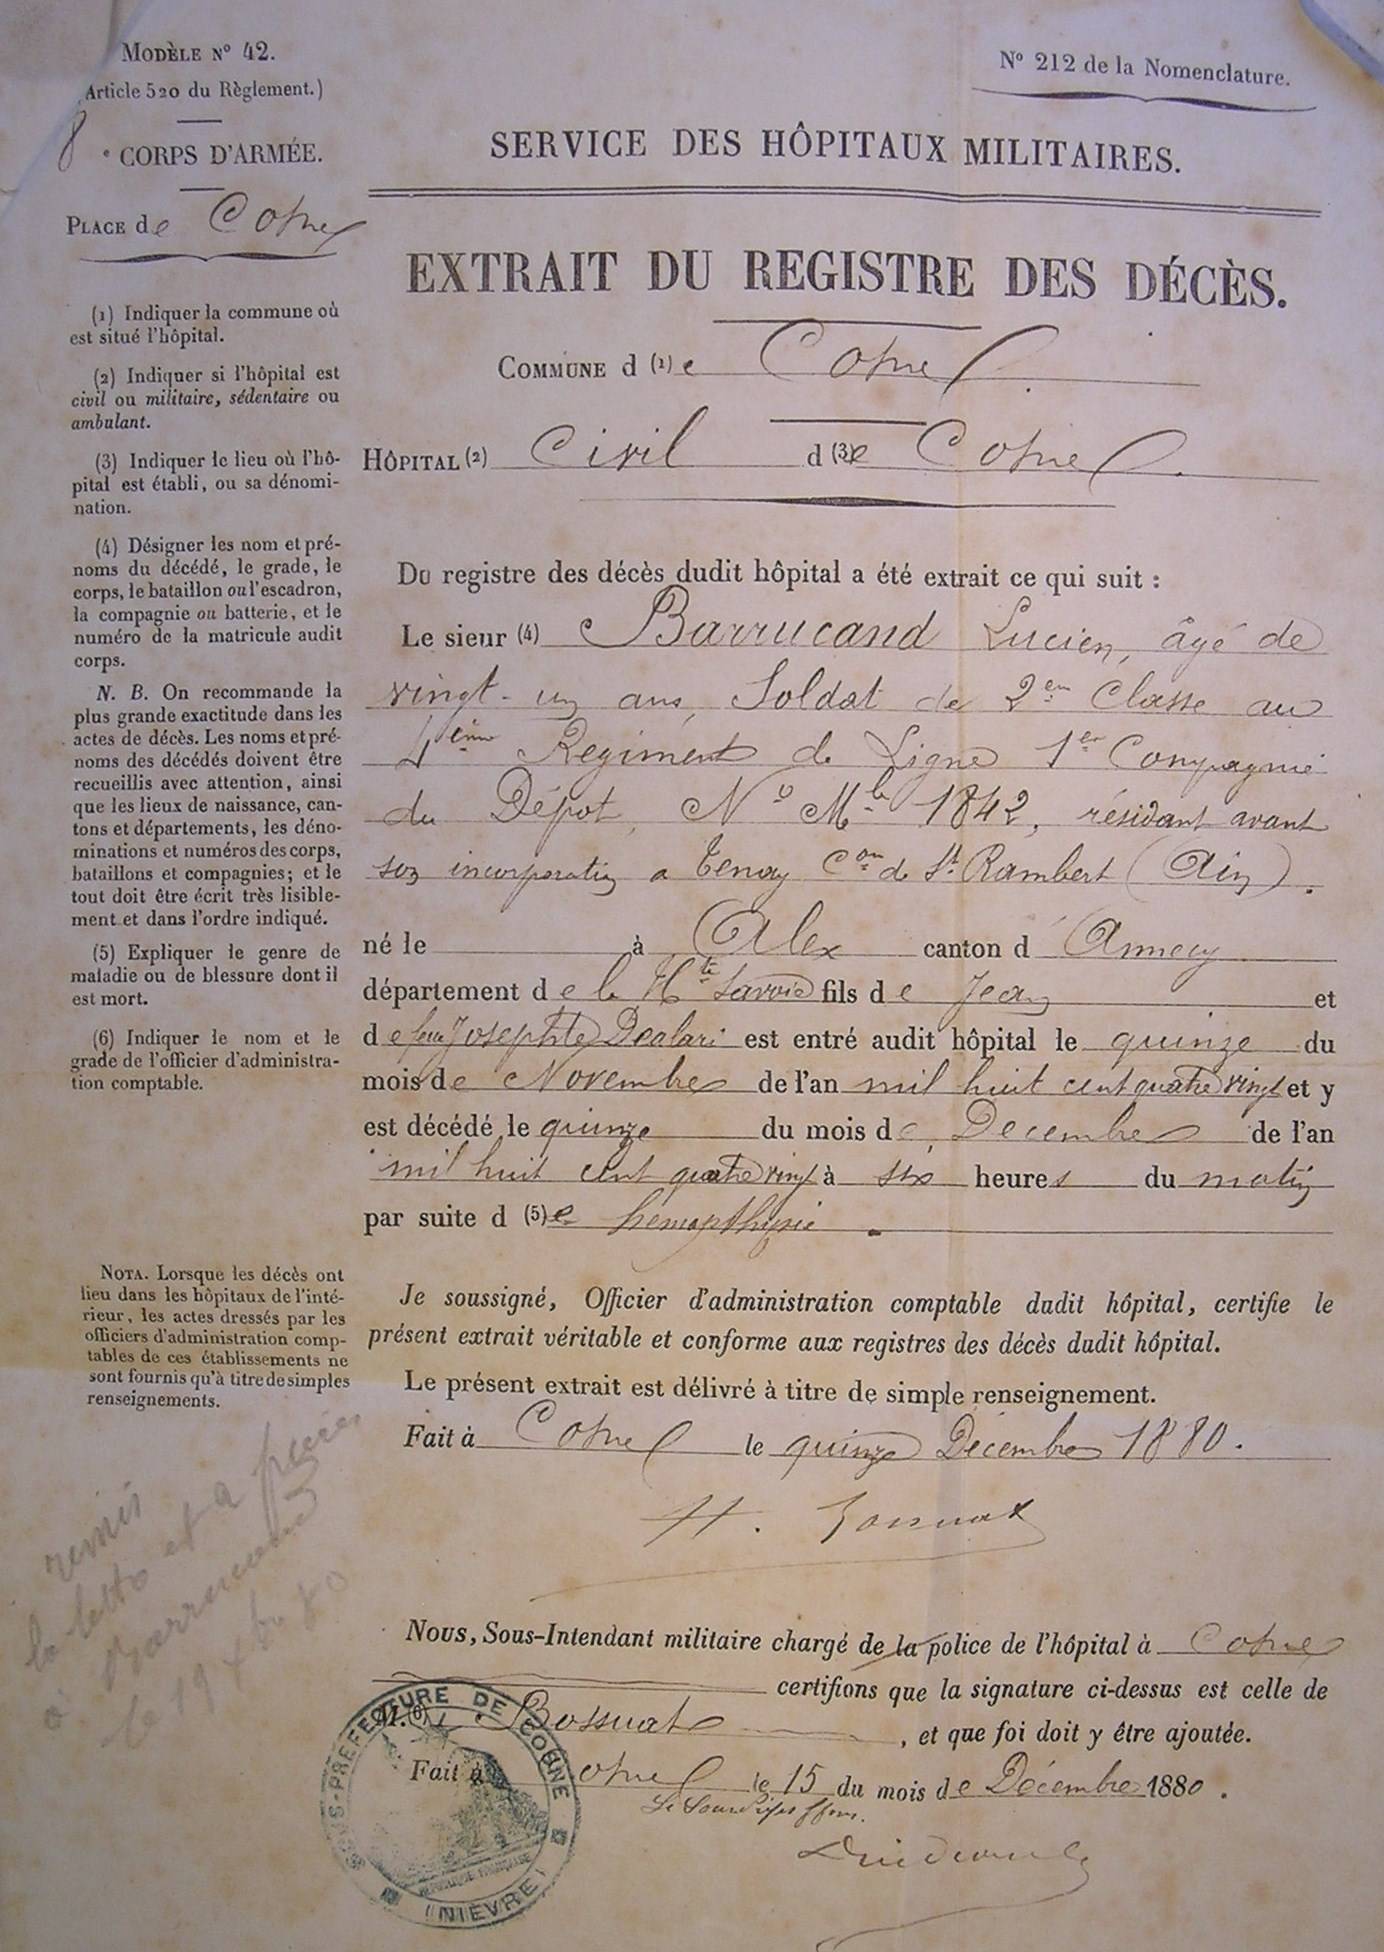 MODÈLE N° 42.
(Article 520 du Règlement.)
8e CORPS D'ARMÉE.
PLACE de Cosne
N° 212 de la Nomenclature.
SERVICE DES HÔPITAUX MILITAIRES.
EXTRAIT DU REGISTRE DES DÉCÈS.
COMMUNE d (1) e Cosne
HÔPITAL (2) Civil d (3) e Cosne
(1) Indiquer la commune où
est situé l'hôpital.
(2) Indiquer si l'hôpital est
civil ou militaire, sédentaire ou
ambulant.
(3) Indiquer le lieu où l'hô-
pital est établi, ou sa dénomi-
nation.
(4) Désigner les nom et pré-
noms du décédé, le grade, le
corps, le bataillon ou l'escadron,
la compagnie ou batterie, et le
numéro de la matricule audit
corps.
N. B. On recommande la
plus grande exactitude dans les
actes de décès. Les noms et pré-
noms des décédés doivent être
recueillis avec attention, ainsi
que les lieux de naissance, can-
tons et départements, les déno-
minations et numéros des corps,
bataillons et compagnies; et le
tout doit être écrit très lisible-
ment et dans l'ordre indiqué.
(5) Expliquer le genre de
maladie ou de blessure dont il
est mort.
(6) Indiquer le nom et le
grade de l'officier d'administra-
tion comptable.
NOTA. Lorsque les décès ont
lieu dans les hôpitaux de l'inté-
rieur, les actes dressés par les
officiers d'administration comp-
tables de ces établissements ne
sont fournis qu'à titre de simples
renseignements.
Du registre des décès dudit hôpital a été extrait ce qui suit :
Le sieur (4) Barrucand Lucien, âgé de
vingt-un ans, Soldat de 2em Classe au
4ème Regiment de Ligne 1er Compagnie
du Dépot, No Mle 1842, résidant avant
son incorporation a Tenay Con de St Rambert (Ain).
né le à Alex canton d Annecy
département de la Hte Savoie fils de Jean et
de feue Josephte Dealari est entré audit hôpital le quinze du
mois de Novembre de l'an mil huit cent quatre vingt et y
est décédé le quinze du mois de Decembre de l'an
mil huit cent quatre vingt à six heures du matin
par suite d (5) e hemopthysie.
Je soussigné, Officier d'administration comptable dudit hôpital, certifie le
présent extrait véritable et conforme aux registres des décès dudit hôpital.
Le présent extrait est délivré à titre de simple renseignement.
Fait à Cosne le quinze Décembre 1880.
H. Bossuat
remis
la lettre et a
à Barrucand
le 19 Xbre 80
Nous, Sous-Intendant militaire chargé de la police de l'hôpital à Cosne
certifions que la signature ci-dessus est celle de
M. (6) Bossuat, et que foi doit y être ajoutée.
Fait à Cosne le 15 du mois de Décembre 1880.
SOUS-PREFECTURE DE COSNE
REPUBLIQUE FRANÇAISE
(NIEVRE)